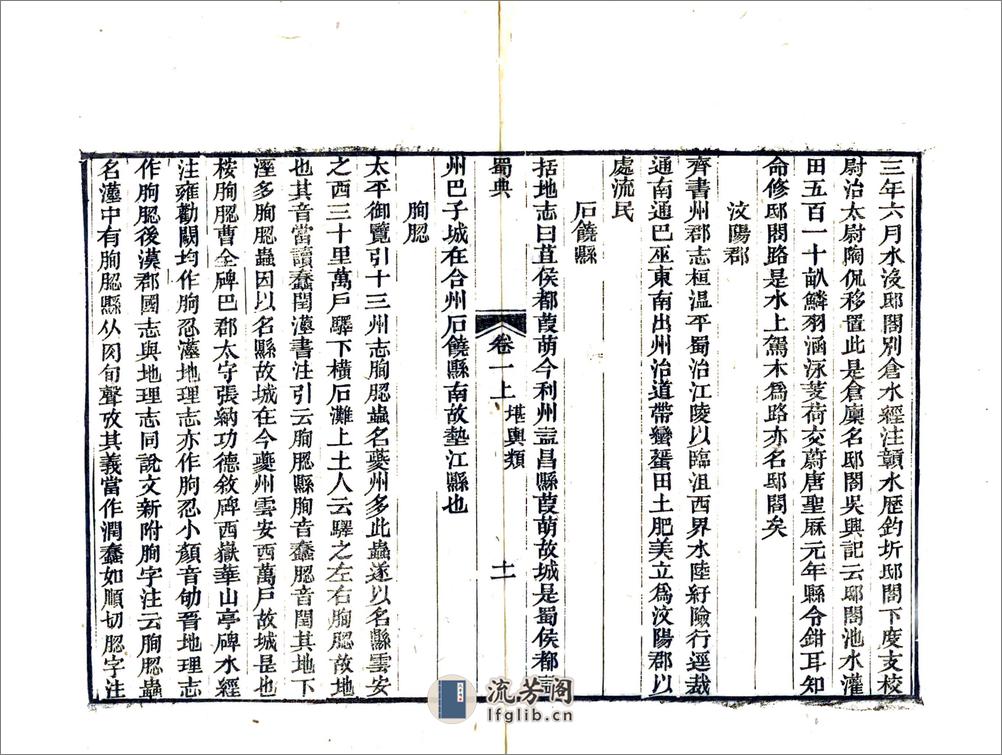 三年六月水沒邸閣別倉水經注贛水歷釣圻邸閣下度支校
尉治太尉陶侃移置此是倉廩名邸閣吳興記云邸閣池水灌
田五百一十畝鱗羽涵泳芰荷交蔚唐聖厤元年縣令鉗耳知
命修邸閣路是水上駕木爲路亦名邸閣矣
汶陽郡
齊書州郡志桓温平蜀治江陵以臨沮西界水陸紆險行逕裁
通南通巴巫東南出州治道帶蠻蜑田土肥美立爲汶陽郡以
處流民
石饒縣
括地志曰苴侯都葭萌今利州益昌縣葭萌故城是蜀侯都
蜀典 卷一上 堪輿類 十一
州巴子城在合州石饒縣南故墊江縣也
朐䏰
太平御覽引十三州志朐䏰蟲名夔州多此蟲遂以名縣雲安
之西三十里萬戶驛下橫石灘上土人云驛之左右朐䏰故地
也其音當讀蠢閏漢書注引云朐䏰縣朐音蠢䏰音閏其地下
溼多朐䏰蟲因以名縣故城在今夔州雲安西萬戶故城是也
桉朐䏰曹全碑巴郡太守張納功德敘碑西嶽華山亭碑水經
注雍勸闕均作朐忍漢地理志亦作朐忍小顏音劬晉地理志
作朐䏰後漢郡國志與地理志同說文新附朐字注云朐䏰蟲
名漢中有朐䏰縣从肉旬聲攷其義當作潤蠢如順切䏰字注
流芳阁
lfglib.cn